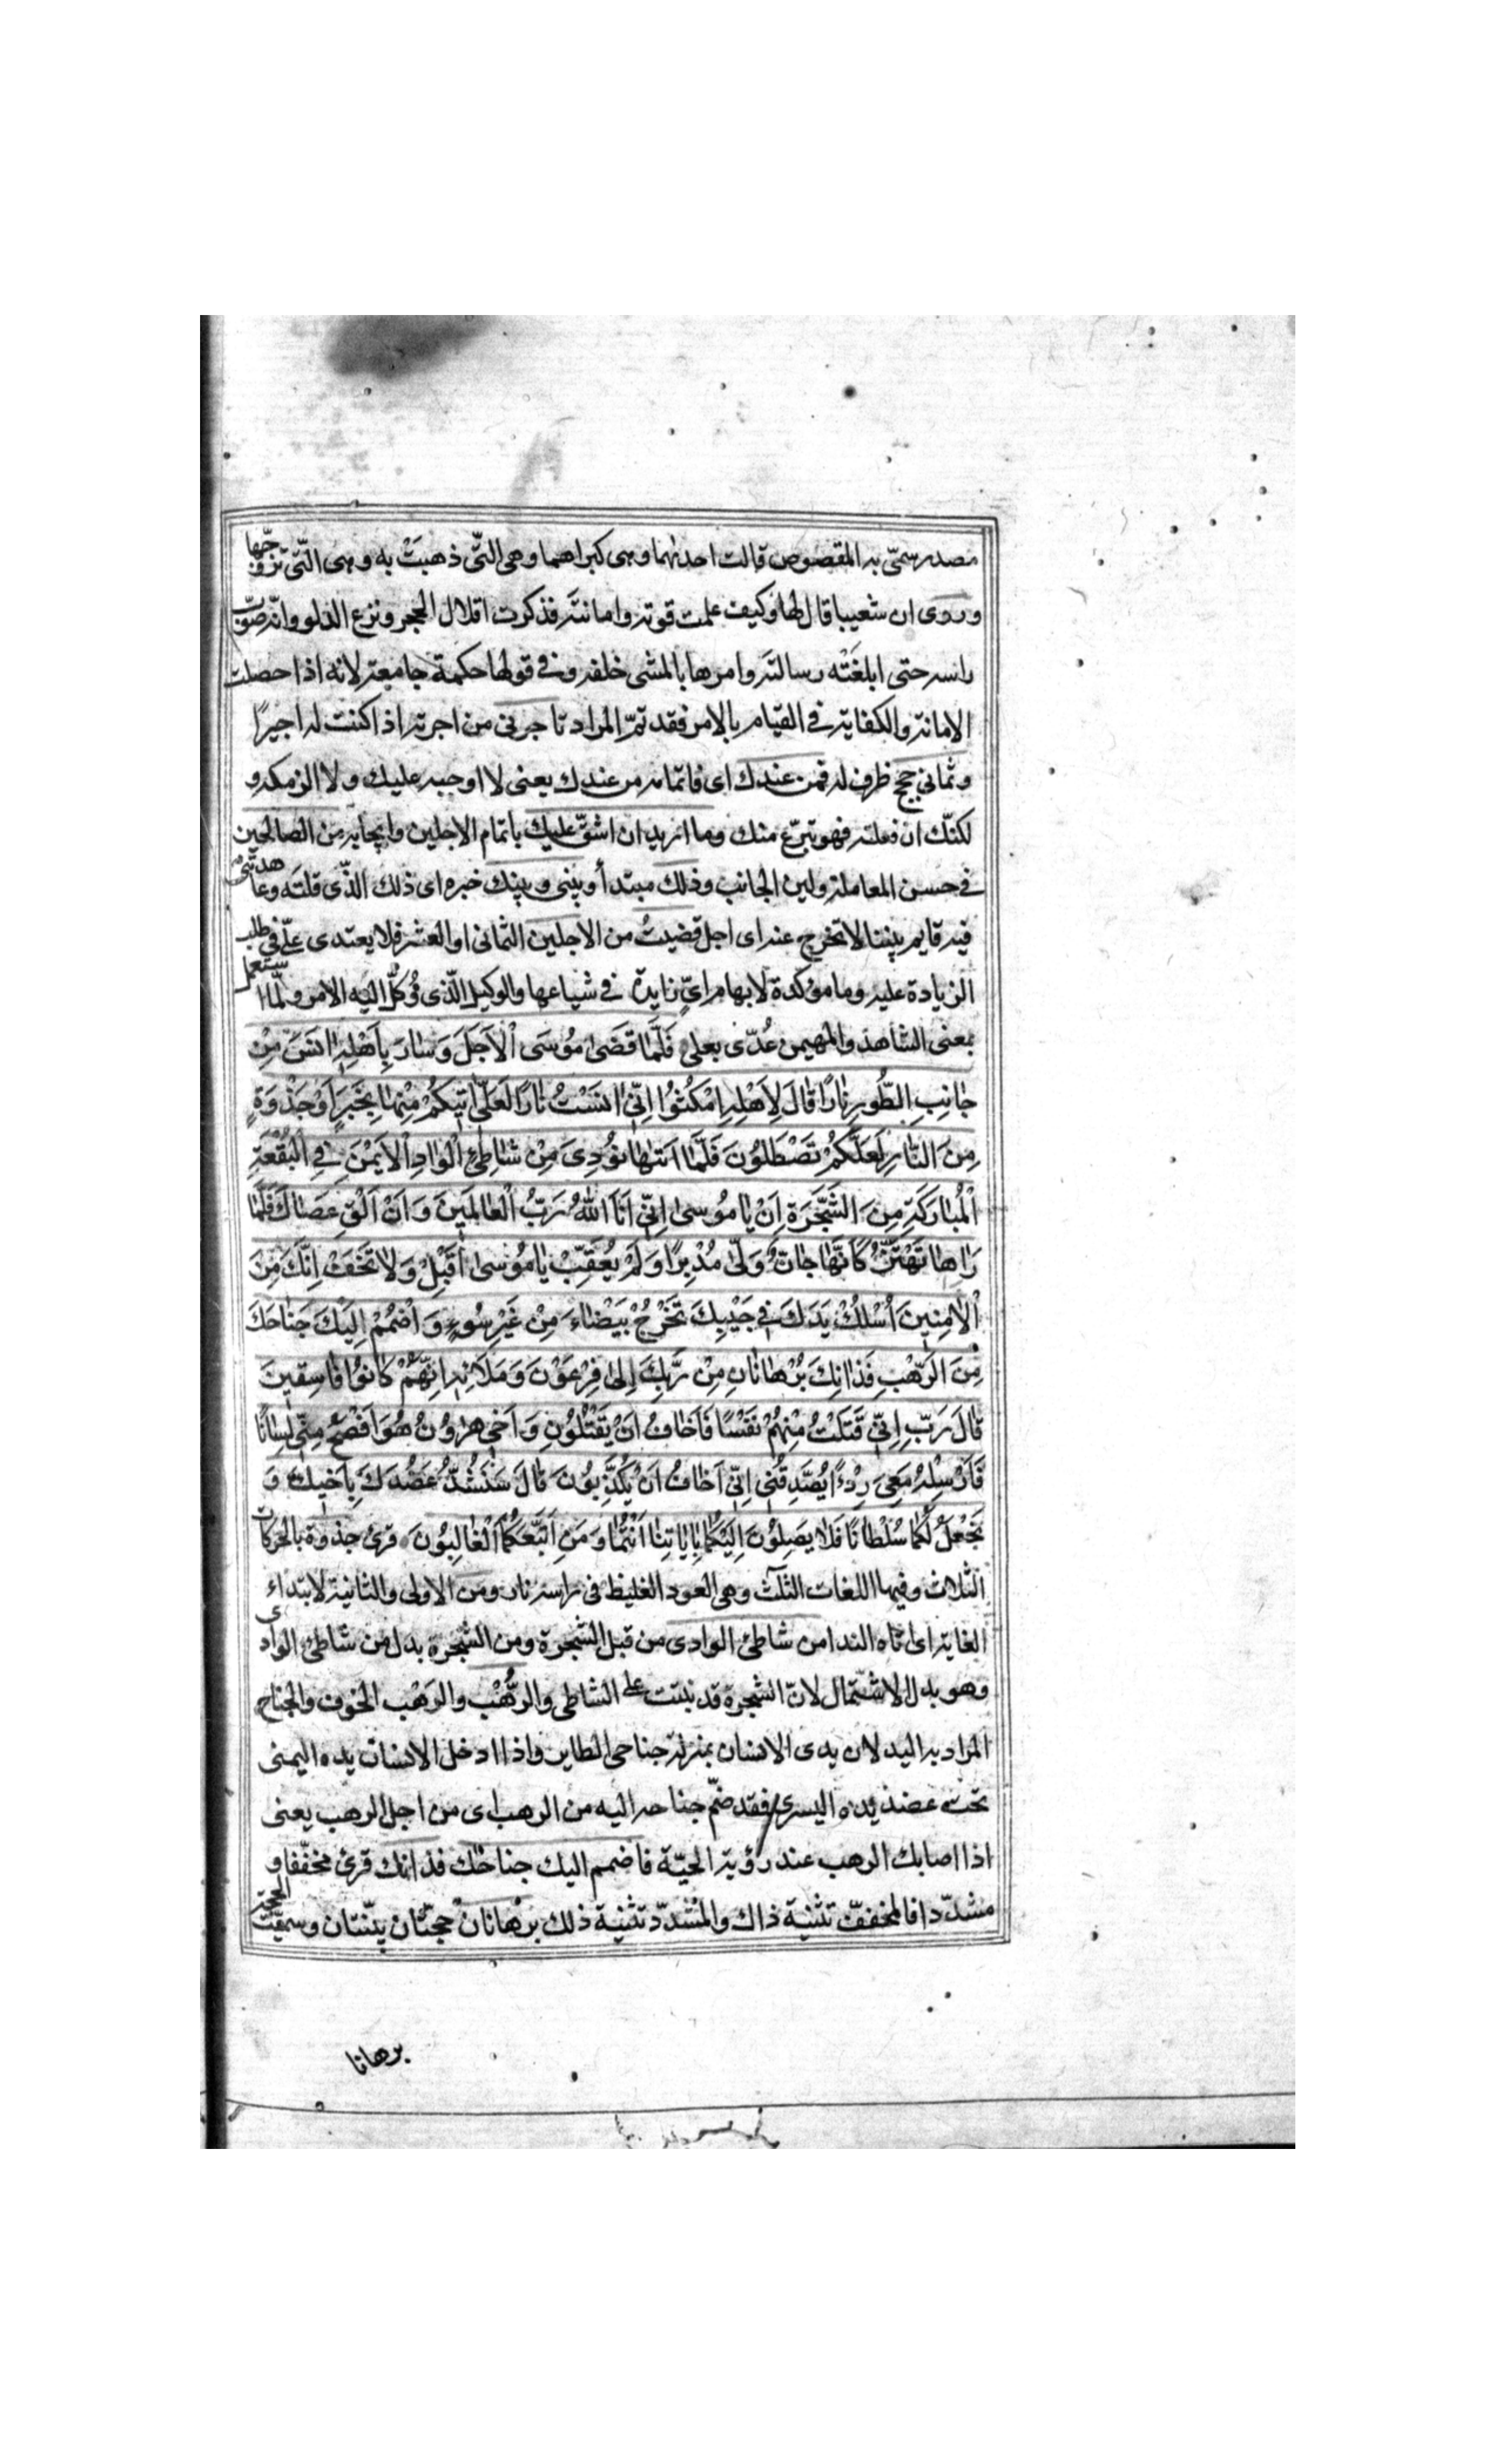 مصدر سمّى به المقصوص قالت احديهما وهى كبراهما وهى التّى ذهبَتْ به وهى التّى تزوّجها
وروى ان شعيبا قال لها وكيف علمت قوته وامانته فذكرت اقلال الحجر ونزع الدلو وانّه صوّب
راسه حتى ابلغَتْه رسالته وامرها بالمشى خلفه وفى قولها حكمة جامعة لانه اذا حصلت
الامانة والكفاية فى القيام بالامر فقد تمّ المراد تاجرنى من اجرته اذا كنت له اجيرًا
وثمانى حجج ظرف له فمن عندك اى فاتمامه من عندك يعنى لا اوجبه عليك ولا الزمكه و
لكنّك ان فعلته فهو تبرّع منك وما اريد ان اشقّ عليك باتمام الاجلين وايجابه من الصالحين
فى حسن المعاملة ولين الجانب وذلك مبتدأ وبينى وبينك خبره اى ذلك الذّى قلتَه وعاهدتنى
فيه قايم بيننا لا تخرج عنه اى اجل قضيتُ من الاجلين الثمانى او العشر فلا يعتدى علّى فى طلب
الزيادة عليه وما مؤكدة لابهام اىّ زايدة فى شياعها والوكيل الّذى وُكلّ اليه الامر ولمّا استعمل
بمعنى الشاهد والمهيمن عُدّى بعلى فَلَمَّا قَضىٰ مُوسَى الْاَجَلَ وَسٰارَ بِاَهْلِهِ اٰنَسَ مِنْ
جٰانِبِ الطُّورِ نٰارًا قٰالَ لِاَهْلِهِ امْكُثُوا اِنّى اٰنَسْتُ نٰارًا لَعَلّى اٰتيكُمْ مِنْهٰا بِخَبَرٍ اَوْ جَذْوَةٍ
مِنَ النّٰارِ لَعَلَّكُمْ تَصْطَلُونَ فَلَمّٰا اَتٰىهٰا نُودِىَ مِنْ شٰاطِئِ الْوٰادِ الْاَيْمَنِ فِى الْبُقْعَةِ
الْمُبٰارَكَةِ مِنَ الشَّجَرَةِ اَنْ يٰا مُوسىٰ اِنّى اَنَا اللّٰهُ رَبُّ الْعٰالَمينَ وَاَنْ اَلْقِ عَصٰاكَ فَلَمّٰا
رَاٰهٰا تَهْتَزُّ كَاَنَّهٰا جٰانٌّ وَلّٰى مُدْبِرًا وَلَمْ يُعَقِّبْ يٰا مُوسىٰ اَقْبِلْ وَلٰا تَخَفْ اِنَّكَ مِنَ
الْاٰمِنينَ اُسْلُكْ يَدَكَ فى جَيْبِكَ تَخْرُجْ بَيْضٰاءَ مِنْ غَيْرِ سُوءٍ وَاضْمُمْ اِلَيْكَ جَنٰاحَكَ
مِنَ الرَّهْبِ فَذٰانِكَ بُرْهٰانٰانِ مِنْ رَبِّكَ اِلىٰ فِرْعَوْنَ وَمَلَائِهِ اِنَّهُمْ كٰانُوا قَوْمًا فٰاسِقينَ
قٰالَ رَبِّ اِنّى قَتَلْتُ مِنْهُمْ نَفْسًا فَاَخٰافُ اَنْ يَقْتُلُونِ وَاَخى هٰرُونُ هُوَ اَفْصَحُ مِنّى لِسٰانًا
فَاَرْسِلْهُ مَعِىَ رِدْءًا يُصَدِّقُنى اِنّى اَخٰافُ اَنْ يُكَذِّبُونَ قٰالَ سَنَشُدُّ عَضُدَكَ بِاَخيكَ وَ
نَجْعَلُ لَكُمٰا سُلْطٰانًا فَلٰا يَصِلُونَ اِلَيْكُمٰا بِاٰيٰاتِنٰا اَنْتُمٰا وَمَنِ اتَّبَعَكُمَا الْغٰالِبُونَ قرئ جذوة بالحركات
الثلاث وفيها اللغات الثلٰث وهى العود الغليظ فى راسه نار ومن الاولى والثانية لابتداء
الغاية اى اتاه الندا من شاطئ الوادى من قبل الشجرة ومن الشجرة بدل من شاطئ الوادى
وهو بدل الاشتمال لانّ الشجرة قد نبتت على الشاطى والرُّهْب والرَهْب الخوف والجناح
المراد به اليد لان يدى الانسان بمنزلة جناحى الطاير واذا ادخل الانسان يده اليمنى
تحت عضد يده اليسرى فقد ضمّ جناحه اليه من الرهب اى من اجل الرهب يعنى
اذا اصابك الرهب عند رؤية الحيّة فاضمم اليك جناحك فذانك قرئ مخفّفا و
مشدّدا فالمخففّ تثنية ذاك والمشدّد تثنية ذلك برهانان حجتّان بيّنتان وسميّت الحجة
برهانا